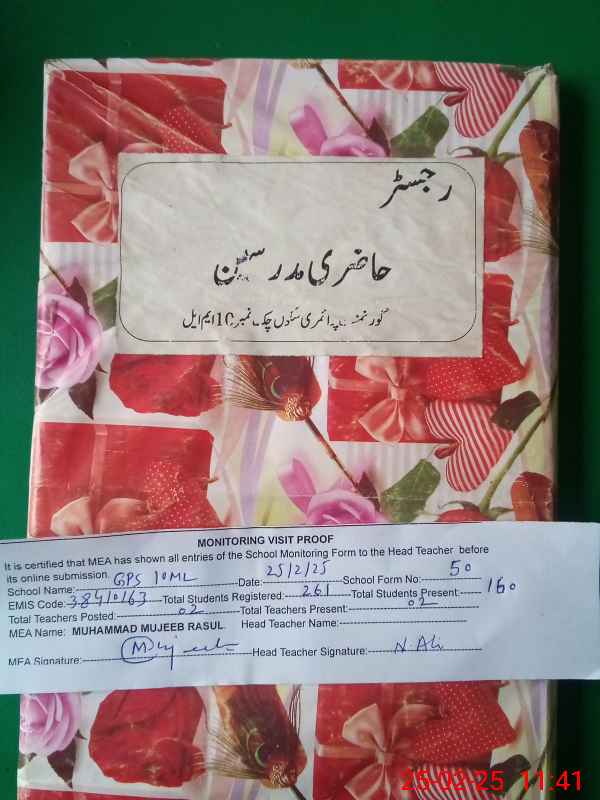 رجسٹر
حاضری مدرسین
گورنمنٹ پرائمری سکول چک نمبر 10 ایم ایل
MONITORING VISIT PROOF
It is certified that MEA has shown all entries of the School Monitoring Form to the Head Teacher before
its online submission.
School Name: GPS 10ML Date: 25/2/25 School Form No: 50
EMIS Code: 38410163 Total Students Registered: 261 Total Students Present: 160
Total Teachers Posted: 02 Total Teachers Present: 02
MEA Name: MUHAMMAD MUJEEB RASUL Head Teacher Name:
MEA Signature: Mujeeb Head Teacher Signature: N. Ali
25-02-25 11:41